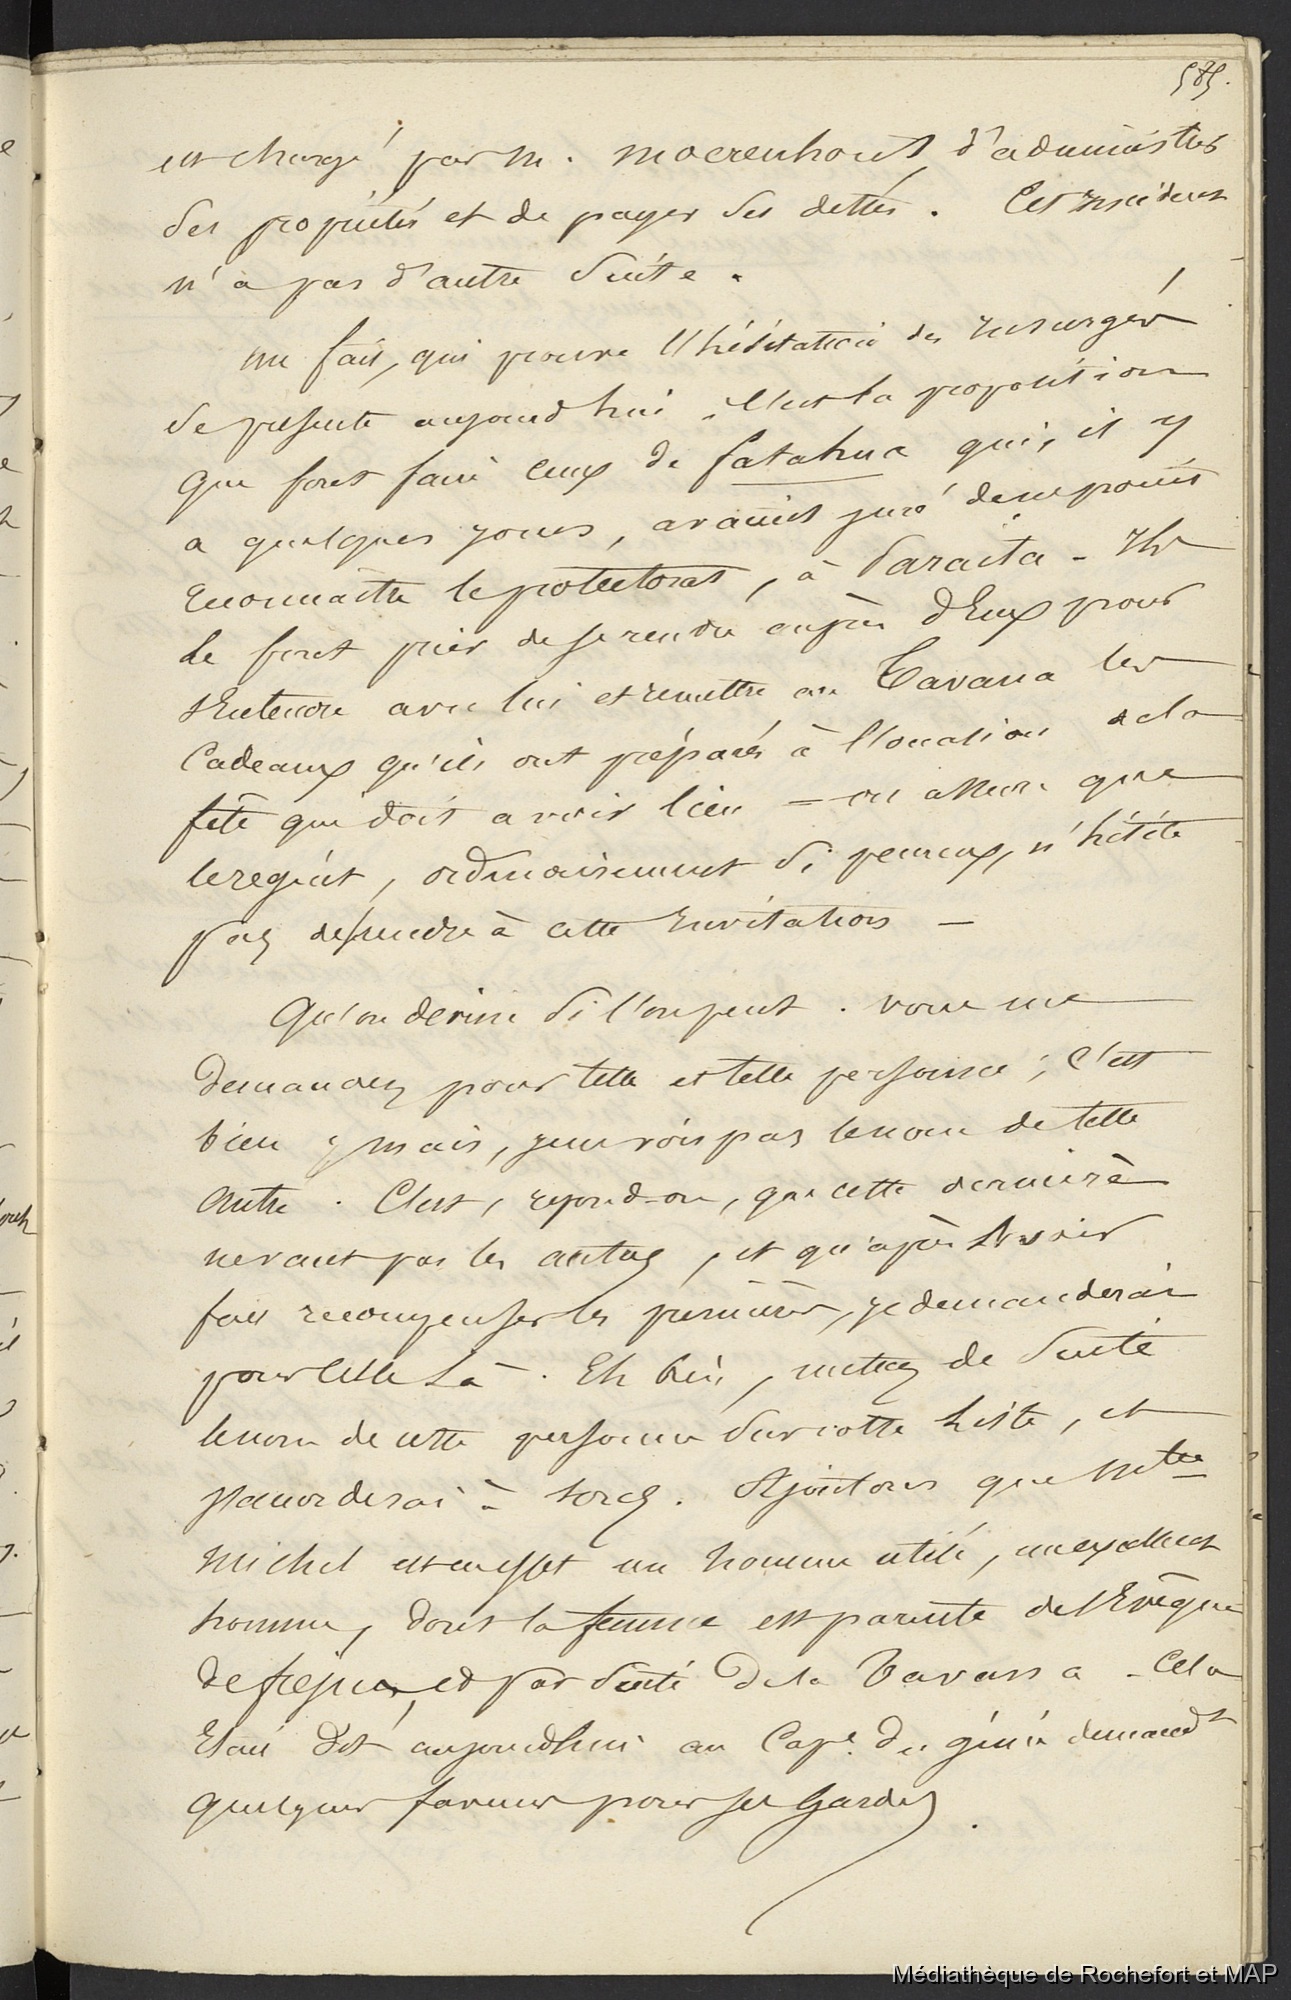 585.
est chargé par M. Moerenhout, d'administrer
ses propriétés et de payer ses dettes. Cet incident
n'a pas d'autre suite.
un fait, qui prouve l'hésitation des insurgés
se présente aujourd'hui. C'est la proposition
que font faire ceux de fatahua qui, il y
a quelques jours, avaient juré de ne point
reconnaître le protectorat, à Paraita - Ils
le font prier de se rendre auprès d'Eux pour
s'Entendre avec lui et remettre au Tavana les
Cadeaux qu'ils ont préparés à l'occasion de la
fête qui doit avoir lieu - on assure que
le régent, ordinairement si peureux, n'hésite
pas de se rendre à cette Invitation -
Qu'on devine si l'on peut. vous me
Demandez pour telle et telle personne; c'est
bien; mais, je ne vois pas le nom de telle
autre. C'est, répond-on, que cette dernière
ne vaut pas les autres, et qu'après avoir
fait récompenser les premières, je demanderai
pour celle là. Eh bien, mettez de suite
le nom de cette personne sur cette liste, et
j'accorderai à tous. Ajoutons que M
Michel est en effet un homme utile, un excellent
homme, dont la femme est parente de l'Evêque
de frejus, et par suite De la Tavana - Cela
Etait dit aujourd'hui au Cap.e Du génie demand.t
quelques faveurs pour ses Gardes.
Médiathèque de Rochefort et MAP